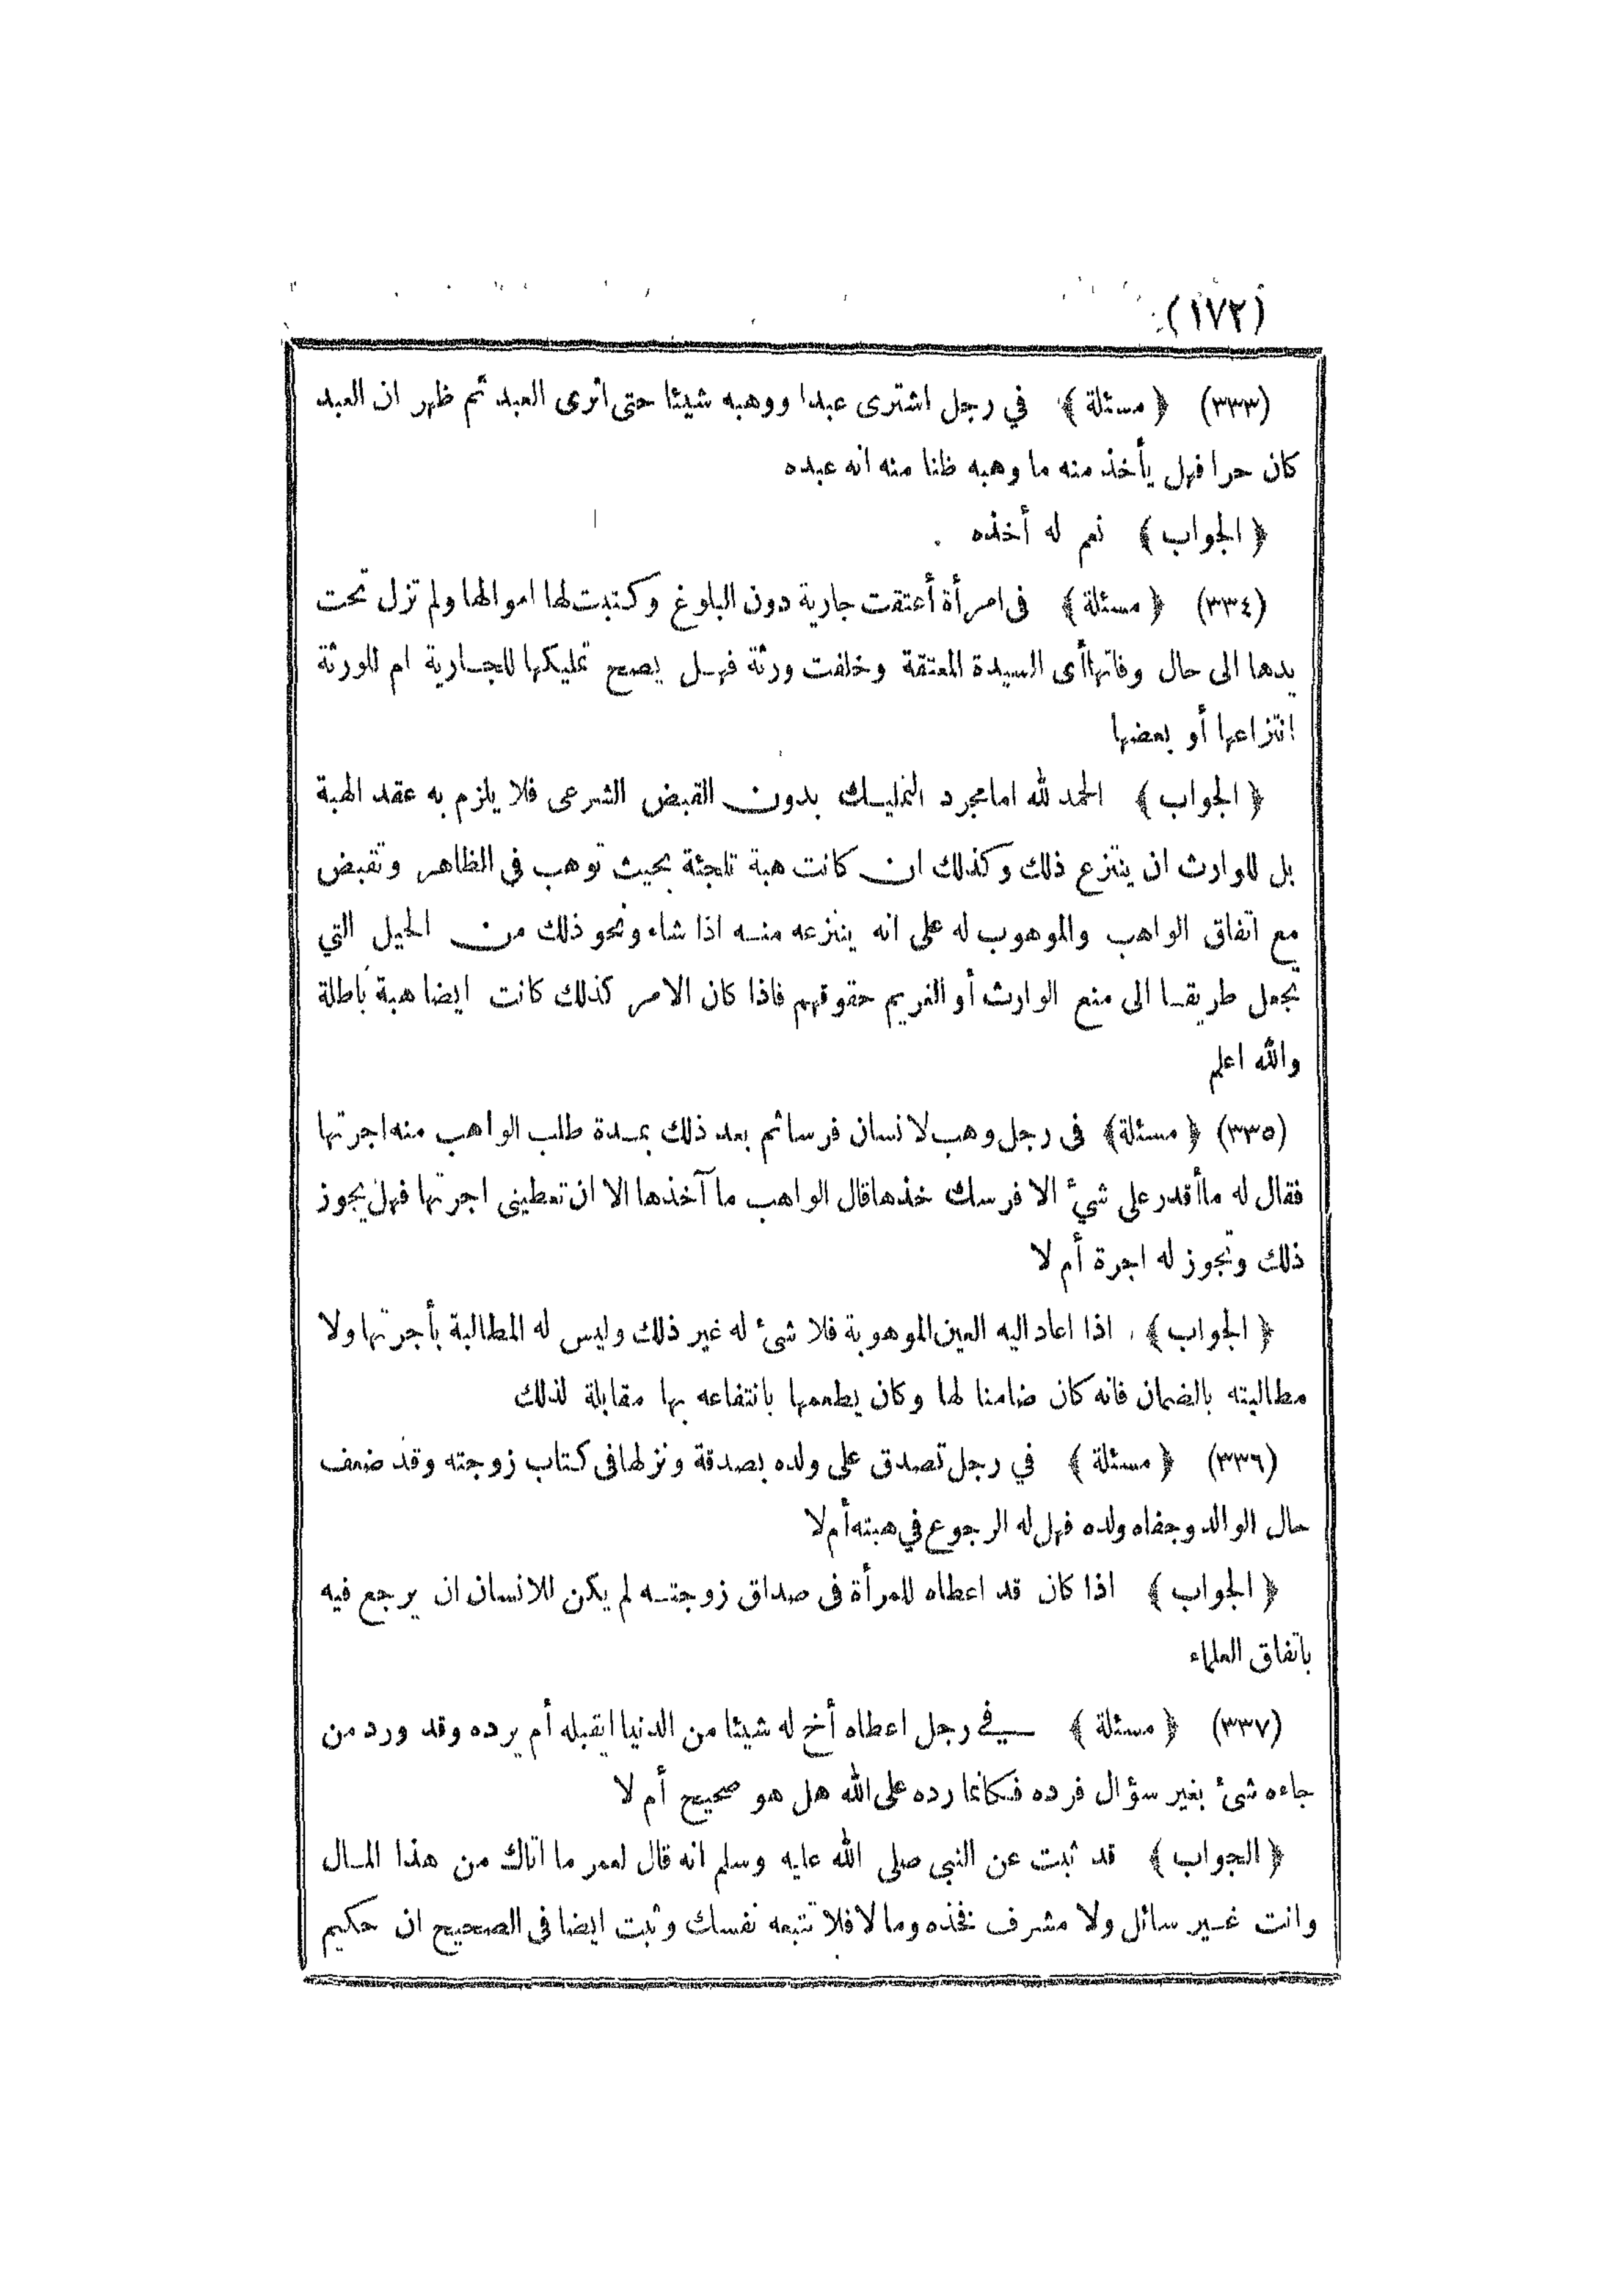 (١٧٢)
(٣٣٣) ﴿ مسئلة ﴾ في رجل اشترى عبدا ووهبه شيئا حتى اثرى العبد ثم ظهر ان العبد
كان حرا فهل يأخذ منه ما وهبه ظنا منه انه عبده
﴿ الجواب ﴾ نعم له أخذه .
(٣٣٤) ﴿ مسئلة ﴾ فى امرأة أعتقت جارية دون البلوغ وكتبت لها اموالها ولم تزل تحت
يدها الى حال وفاتها أى السيدة المعتقة وخلفت ورثة فهل يصح تمليكها للجارية ام للورثة
انتزاعها أو بعضها
﴿ الجواب ﴾ الحمد لله اما مجرد التمليك بدون القبض الشرعى فلا يلزم به عقد الهبة
بل للوارث ان ينتزع ذلك وكذلك ان كانت هبة تلجئة بحيث توهب فى الظاهر وتقبض
مع اتفاق الواهب والموهوب له على انه ينتزعه منه اذا شاء ونحو ذلك من الحيل التي
تجعل طريقا الى منع الوارث أو الغريم حقوقهم فاذا كان الامر كذلك كانت ايضا هبة باطلة
والله اعلم
(٣٣٥) ﴿ مسئلة﴾ فى رجل وهب لانسان فرسا ثم بعد ذلك بمدة طلب الواهب منه اجرتها
فقال له ما أقدر على شيء الا فرسك خذها قال الواهب ما آخذها الا ان تعطينى اجرتها فهل يجوز
ذلك وتجوز له اجرة أم لا
﴿ الجواب ﴾ . اذا اعاد اليه العين الموهوبة فلا شئ له غير ذلك وليس له المطالبة بأجرتها ولا
مطالبته بالضمان فانه كان ضامنا لها وكان يطعمها بانتفاعه بها مقابلة لذلك
(٣٣٦) ﴿ مسئلة ﴾ في رجل تصدق على ولده بصدقة ونزلها فى كتاب زوجته وقد ضعف
حال الوالد وجفاه ولده فهل له الرجوع في هبته أم لا
﴿ الجواب ﴾ اذا كان قد اعطاه للمرأة فى صداق زوجته لم يكن للانسان ان يرجع فيه
باتفاق العلماء
(٣٣٧) ﴿ مسئلة ﴾ في رجل اعطاه أخ له شيئا من الدنيا ايقبله أم يرده وقد ورد من
جاءه شئ بغير سؤال فرده فكانما رده على الله هل هو صحيح أم لا
﴿ الجواب ﴾ قد ثبت عن النبي صلى الله عليه وسلم انه قال لعمر ما اتاك من هذا المال
وانت غير سائل ولا مشرف فخذه وما لا فلا تتبعه نفسك وثبت ايضا فى الصحيح ان حكيم